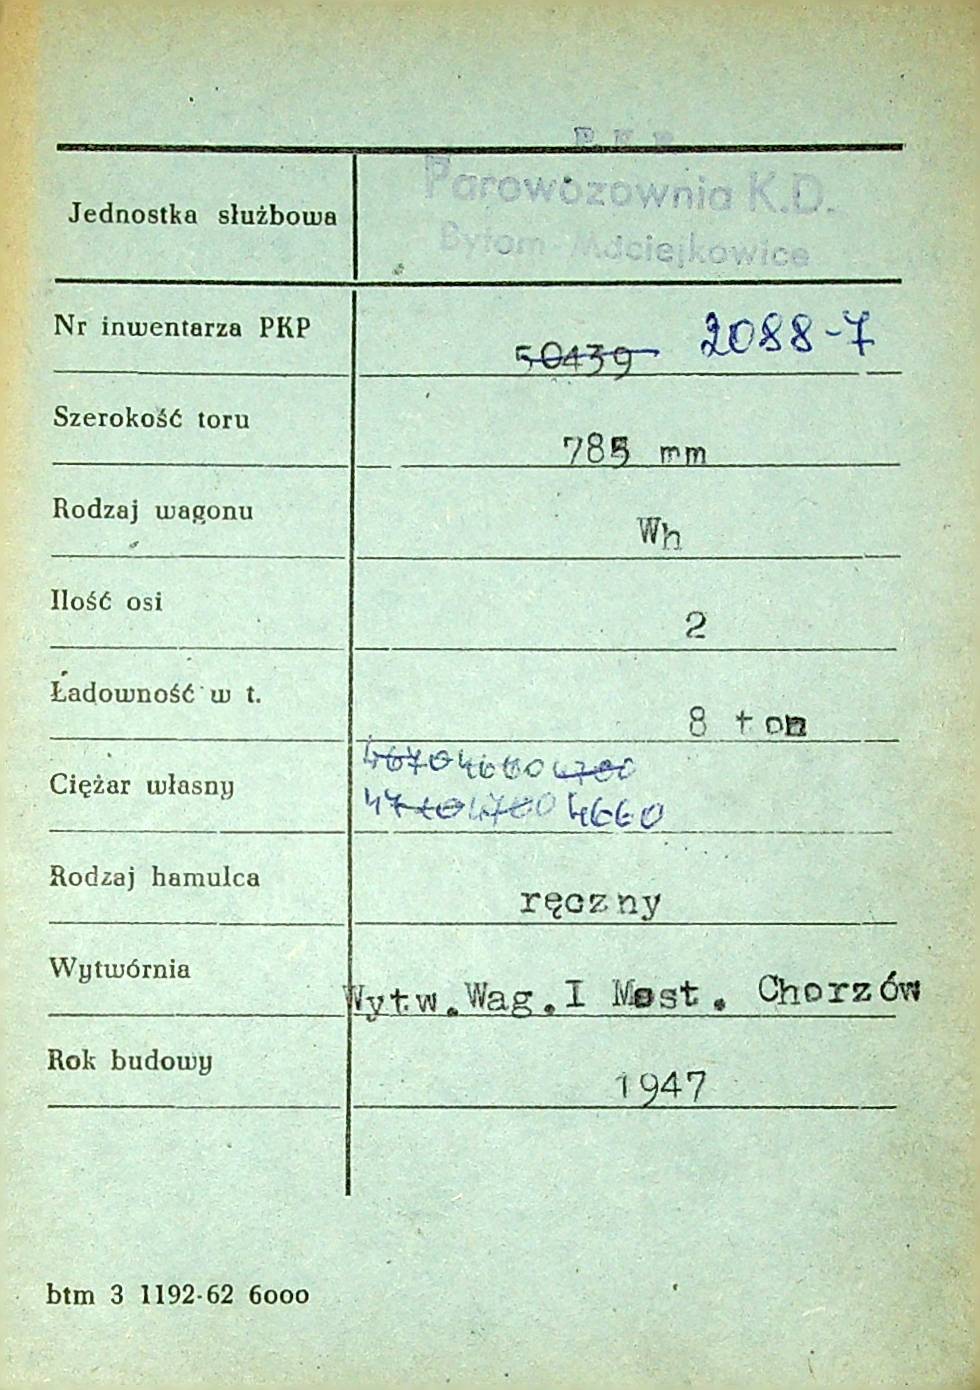 P. K. P.
Parowozownia K.D.
Jednostka służbowa
Bytom-Maciejkowice
Nr inwentarza PKP 50439 2088-7
Szerokość toru 785 mm
Rodzaj wagonu Wh
Ilość osi 2
Ładowność w t. 8 ton
4670 4660 4700
Ciężar własny
4710 4700 4660
Rodzaj hamulca ręczny
Wytwórnia Wytw.Wag.I Most. Chorzów
Rok budowy 1947
btm 3 1192-62 6000